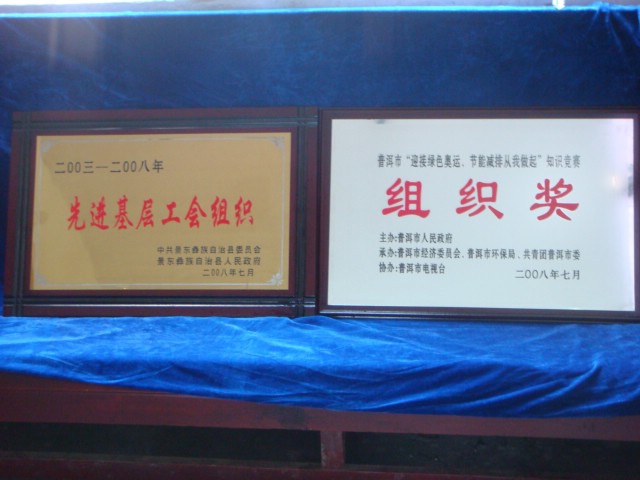 二00三—二00八年
先进基层工会组织
中共景东彝族自治县委员会
景东彝族自治县人民政府
二00八年七月
普洱市“迎接绿色奥运、节能减排从我做起”知识竞赛
组织奖
主办:普洱市人民政府
承办:普洱市经济委员会、普洱市环保局、共青团普洱市委
协办:普洱市电视台
二00八年七月